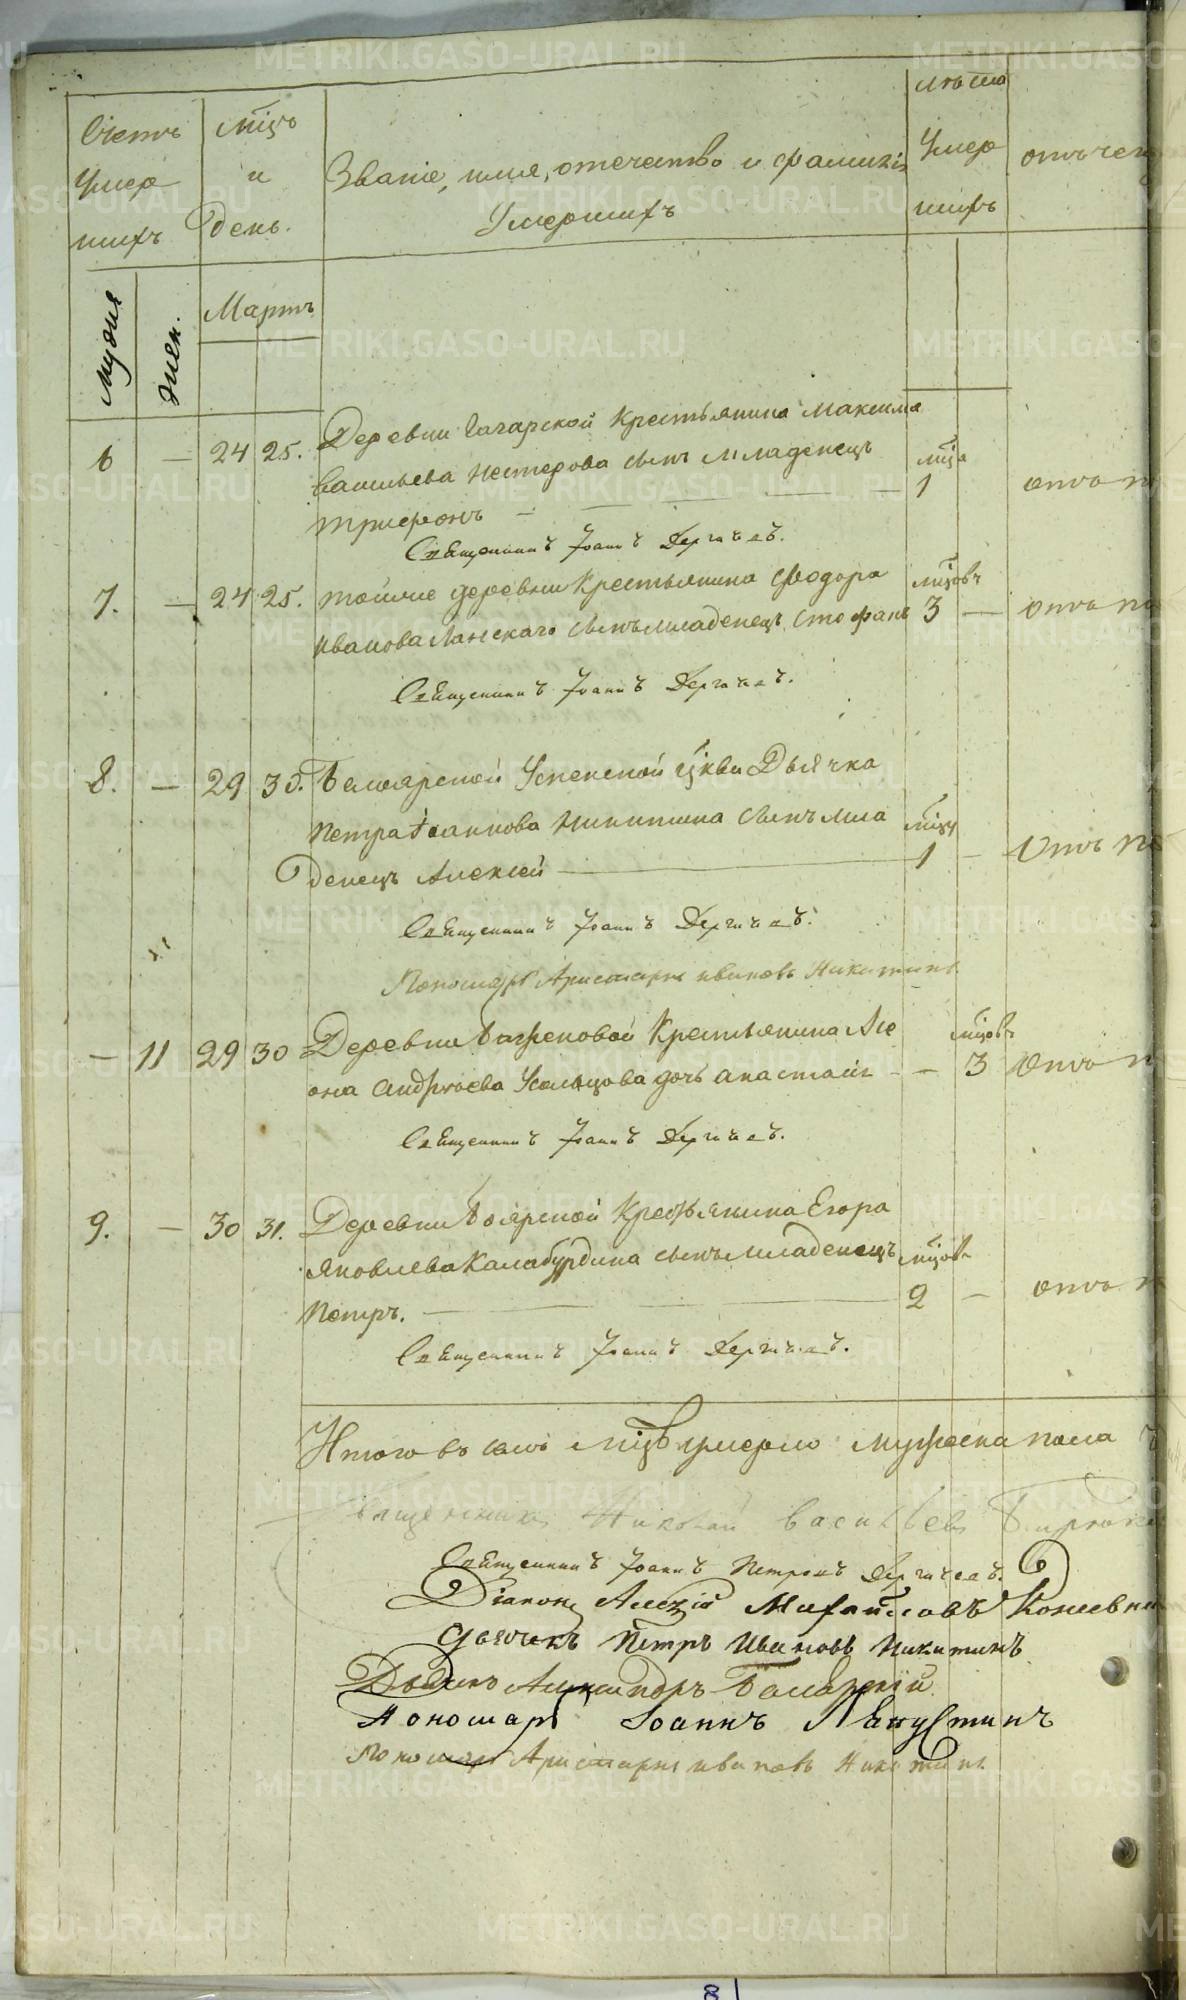 Счетъ
Умер
шихъ
мцъ
и
день.
Званіе, имя, отечество и фамилія
Умершихъ
лѣта
Умер
шихъ
отъ чего
Мужія
жен.
Мартъ
6 — 24 25. Деревни Гагарской Крестьянина Максима
Васильева Нестерова сынъ младенецъ мца
Трифонъ — 1 отъ
Священникъ Іоаннъ Дергачевъ.
7. — 24 25. тойже деревни Крестьянина Феодора мцовъ
Иванова Ланскаго сынъ младенецъ Стефанъ 3 — отъ
Священникъ Іоаннъ Дергачевъ.
8. — 29 30. Белоярской Успенской цркви Дьячка
Петра Іоаннова Никитина сынъ мла мцъ
денецъ Алексей — 1 — Отъ
Священникъ Іоаннъ Дергачевъ.
Пономарь Аристархъ Ивановъ Никитинъ.
— 11 29 30 Деревни Баженовой Крестьянина Ле мцовъ
она Андреева Усольцова дочь Анастасія — — 3 Отъ
Священникъ Іоаннъ Дергачевъ.
9. — 30 31. Деревни Боярской Крестьянина Егора
Яковлева Калабурдина сынъ младенецъ мцовъ
Петръ. — 2 — отъ
Священникъ Іоаннъ Дергачевъ.
Итого въ семъ мцѣ умерло мужеска пола
Священникъ Николай Васильевъ
Священникъ Іоаннъ Петровъ Дергачевъ.
Діаконъ Алексій Михайловъ
Дьячекъ Петръ Ивановъ Никитинъ
Дьячекъ Александръ
Пономарь Іоаннъ Лепустинъ
Пономарь Аристархъ Ивановъ Никитинъ.
METRIKI.GASO-URAL.RU
8